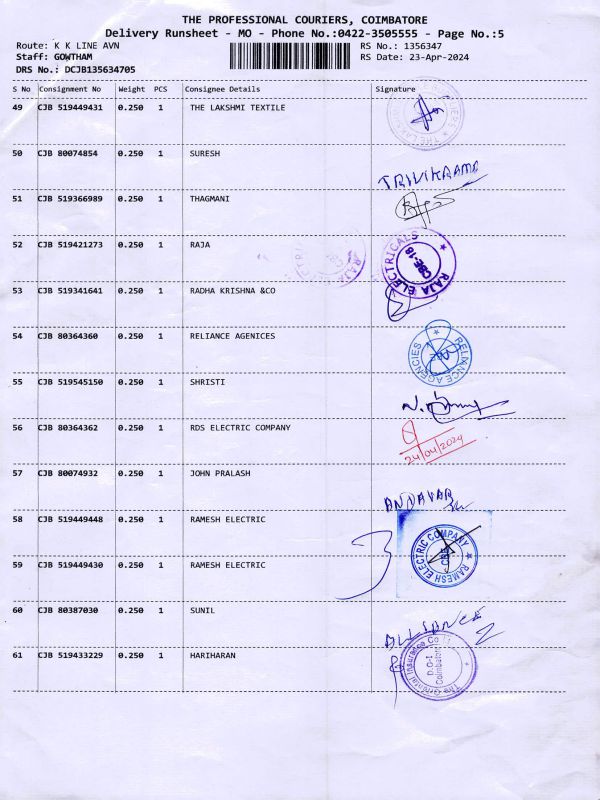 THE PROFESSIONAL COURIERS, COIMBATORE
Delivery Runsheet - MO - Phone No.:0422-3505555 - Page No.:5
Route: K K LINE AVN RS No.: 1356347
Staff: GOWTHAM RS Date: 23-Apr-2024
DRS No.: DCJB135634705
S No Consignment No Weight PCS Consignee Details Signature
49 CJB 519449431 0.250 1 THE LAKSHMI TEXTILE
50 CJB 80074854 0.250 1 SURESH
TRIVIKRAMA
51 CJB 519366989 0.250 1 THAGMANI
52 CJB 519421273 0.250 1 RAJA
RAJA ELECTRICALS
CBE-18
53 CJB 519341641 0.250 1 RADHA KRISHNA &CO
54 CJB 80364360 0.250 1 RELIANCE AGENICES
RELIANCE AGENCIES
55 CJB 519545150 0.250 1 SHRISTI
56 CJB 80364362 0.250 1 RDS ELECTRIC COMPANY
24/04/2024
57 CJB 80074932 0.250 1 JOHN PRALASH
ANDAVAR
58 CJB 519449448 0.250 1 RAMESH ELECTRIC
RAMESH ELECTRIC COMPANY
CBE
59 CJB 519449430 0.250 1 RAMESH ELECTRIC
60 CJB 80387030 0.250 1 SUNIL
61 CJB 519433229 0.250 1 HARIHARAN
The Oriental Insurance Co
D.O-I
Coimbatore